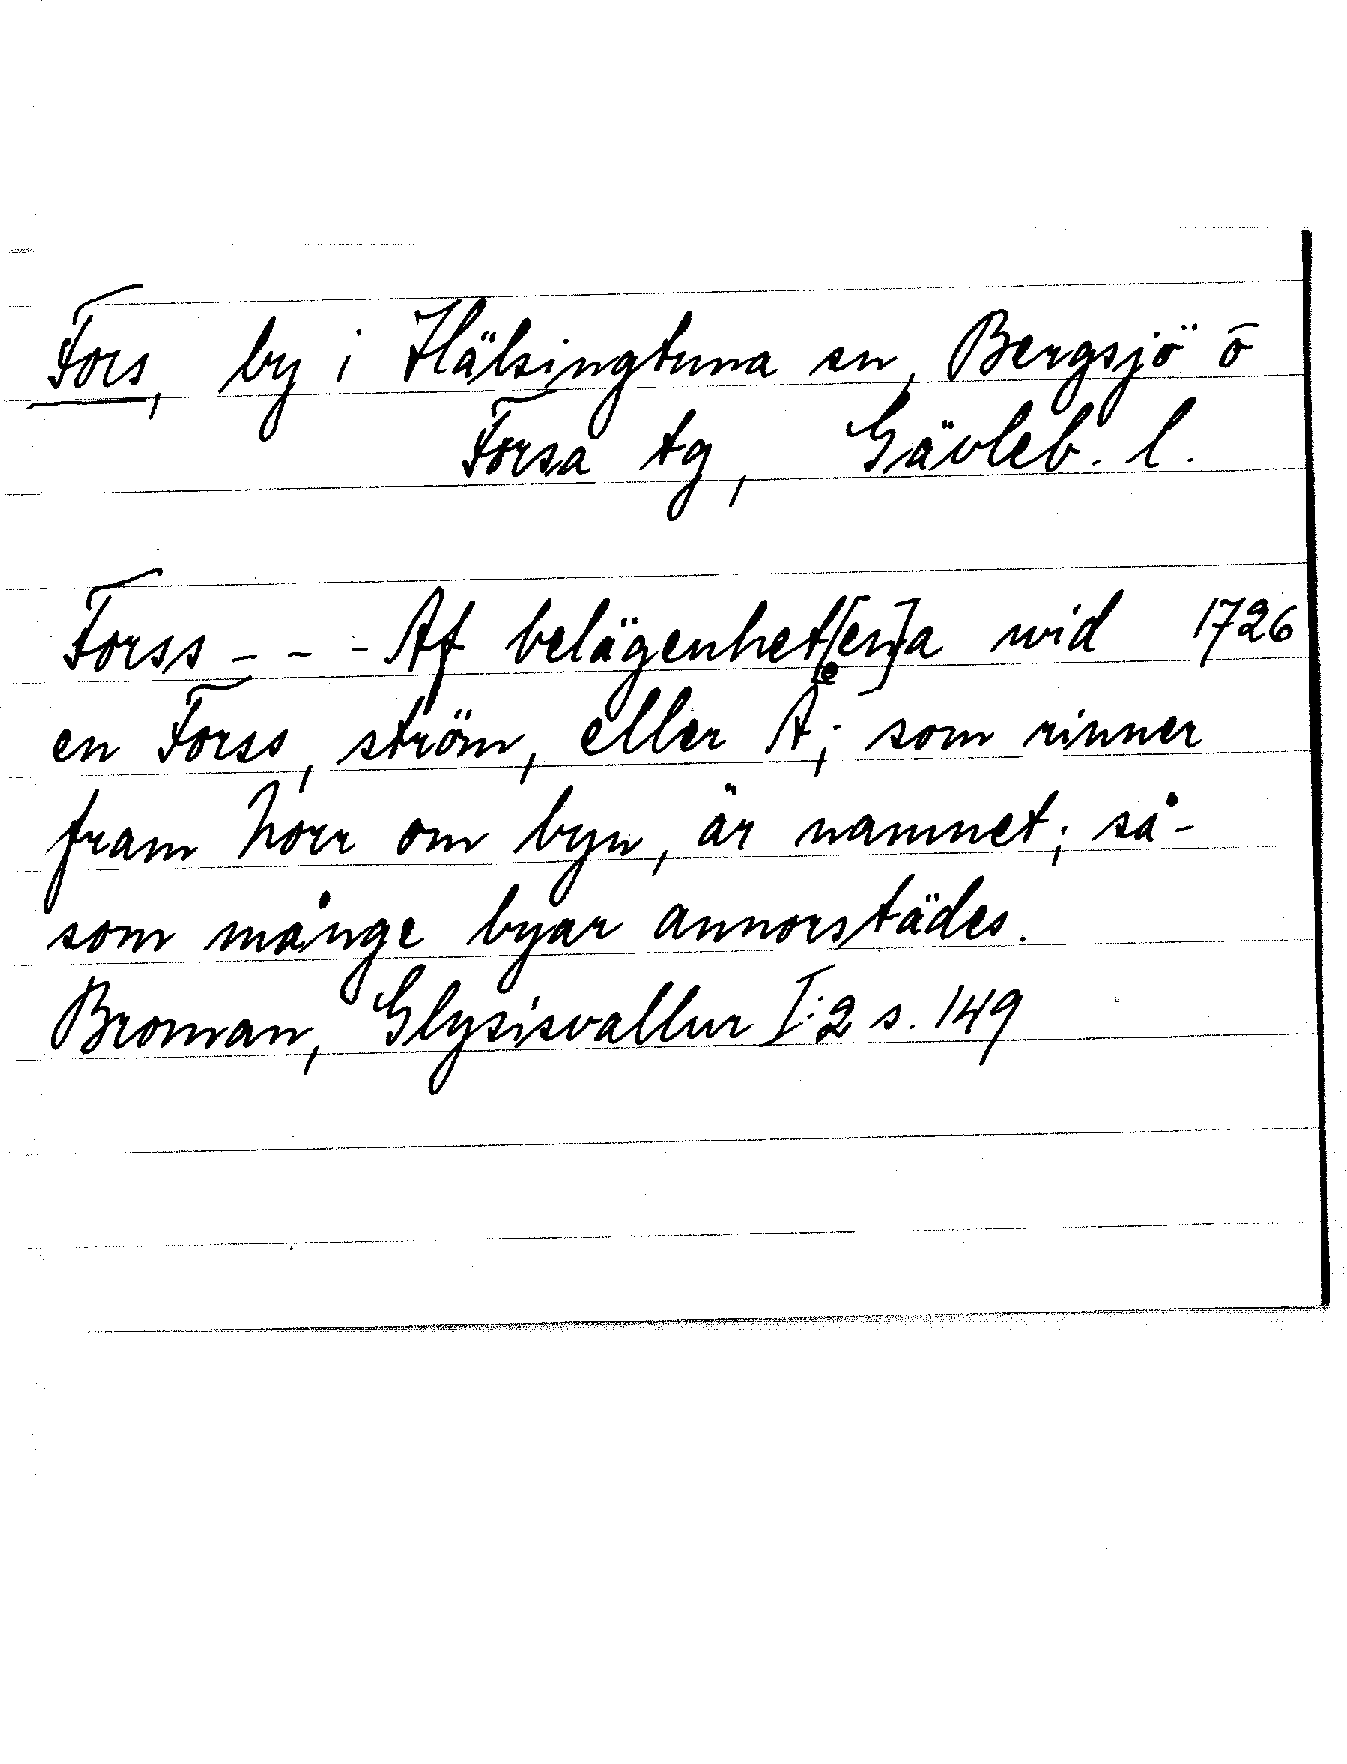 Fors, by i Hälsingtuna sn, Bergsjö o
Forsa tg, Gävleb. l.
Forss - - - Af belägenhet[en]a wid 1726
en Forss, ström, eller Å; som rinner
fram Norr om byn, är namnet; så-
som månge byar annorstädes.
Broman, Glysisvallur I:2 s. 149